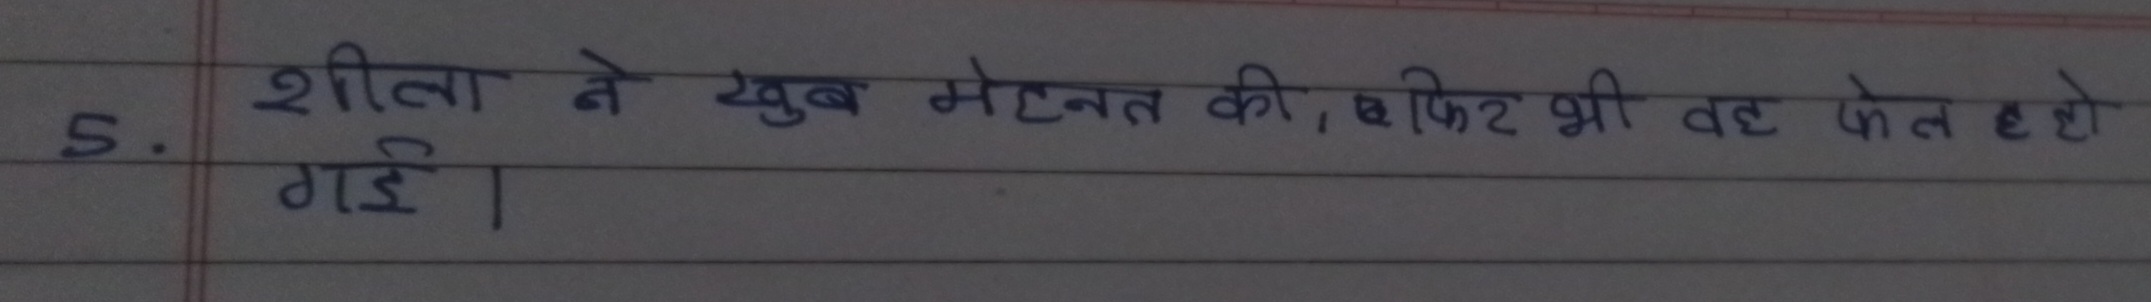 5. शीला ने खुब मेहनत की, फिर भी वह फेल हो
गई।